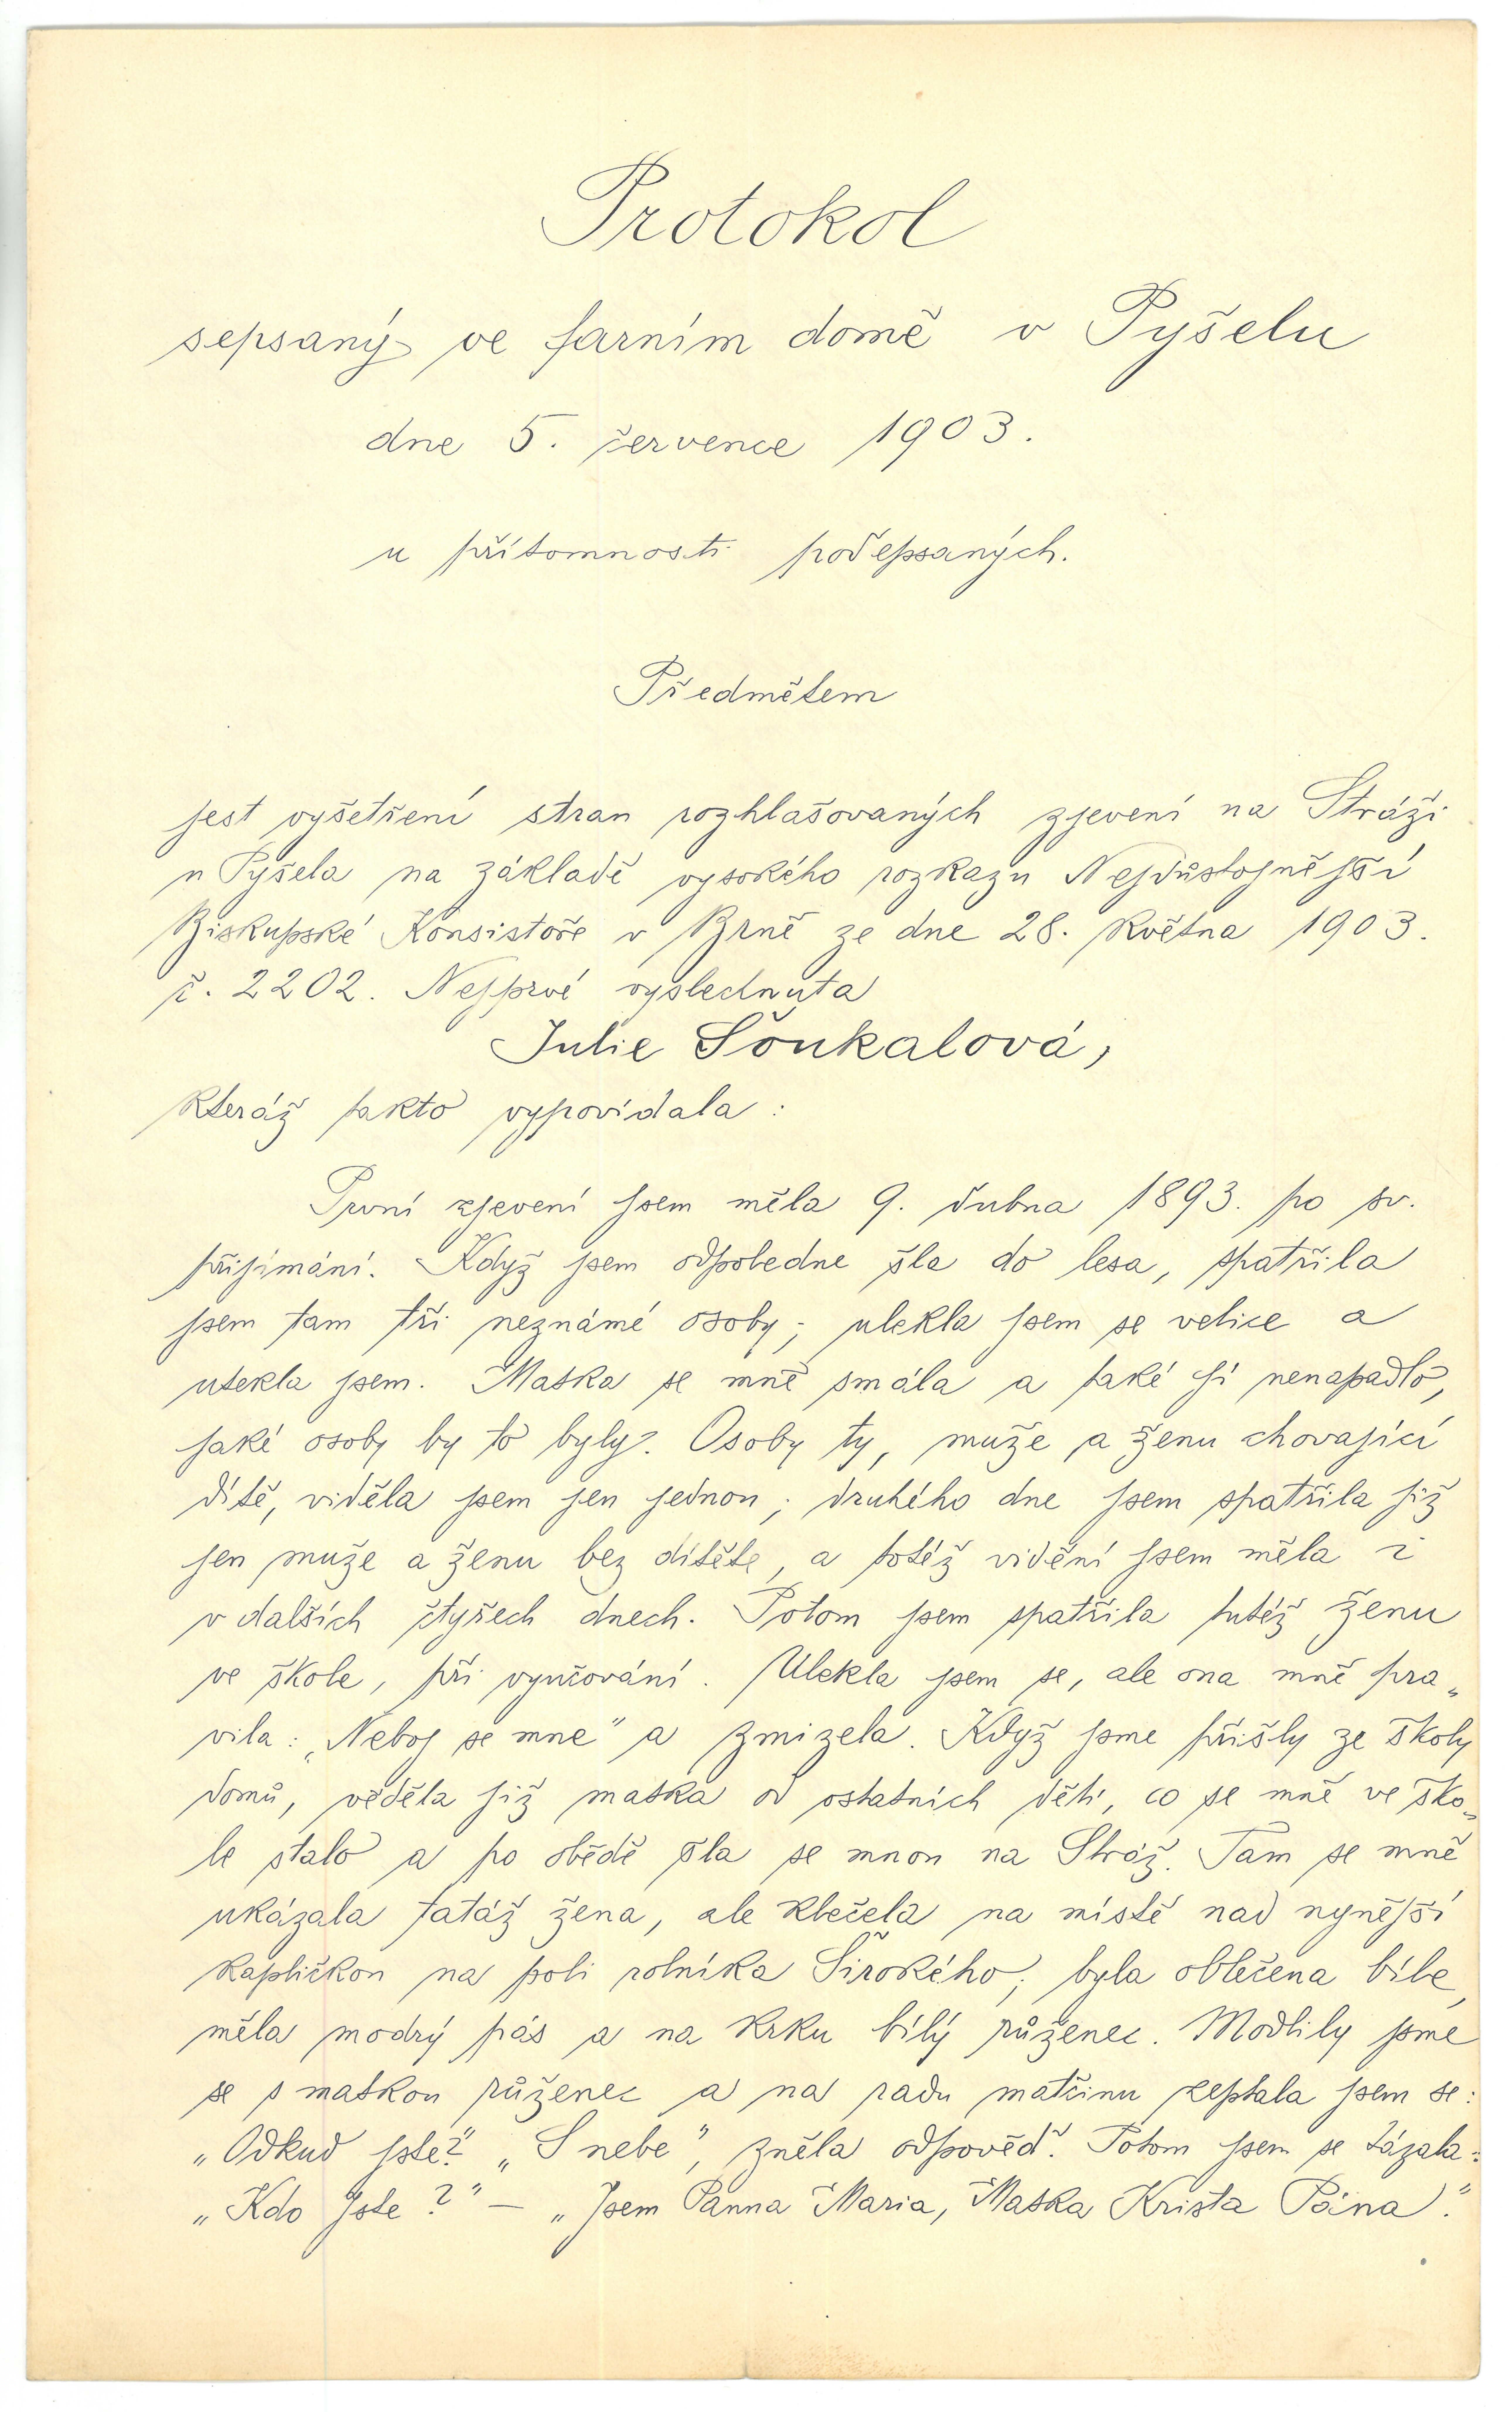 Protokol
sepsaný ve farním domě v Pyšelu
dne 5. července 1903.
u přítomnosti podepsaných.
Předmětem
jest vyšetření stran rozhlašovaných zjevení na Stráži
u Pyšela na základě vysokého rozkazu Nejdůstojnější
Biskupské Konsistoře v Brně ze dne 28. května 1903.
č. 2202. Nejprvé vyslechnuta
Julie Šoukalová,
kteráž takto vypovídala :
První zjevení jsem měla 9. dubna 1893. po sv.
přijímání. Když jsem odpoledne šla do lesa, spatřila
jsem tam tři neznámé osoby; ulekla jsem se velice a
utekla jsem. Matka se mně smála a také jí nenapadlo,
jaké osoby by to byly. Osoby ty, muže a ženu chovající
dítě, viděla jsem jen jednou; druhého dne jsem spatřila již
jen muže a ženu bez dítěte, a totéž vidění jsem měla i
v dalších čtyřech dnech. Potom jsem spatřila tutéž ženu
ve škole, při vyučování. Ulekla jsem se, ale ona mně pra„
vila: „Neboj se mne" a zmizela. Když jsme přišly ze školy
domů, věděla již matka od ostatních dětí, co se mně ve ško„
le stalo a po obědě šla se mnou na Stráž. Tam se mně
ukázala tatáž žena, ale klečela na místě nad nynější
kapličkou na poli rolníka Širokého; byla oblečena bíle,
měla modrý pás a na krku bílý růženec. Modlily jsme
se s matkou růženec a na radu matčinu zeptala jsem se:
„Odkud jste?" „S nebe", zněla odpověď. Potom jsem se tázala:
„Kdo jste?" — „Jsem Panna Maria, Matka Krista Pána."